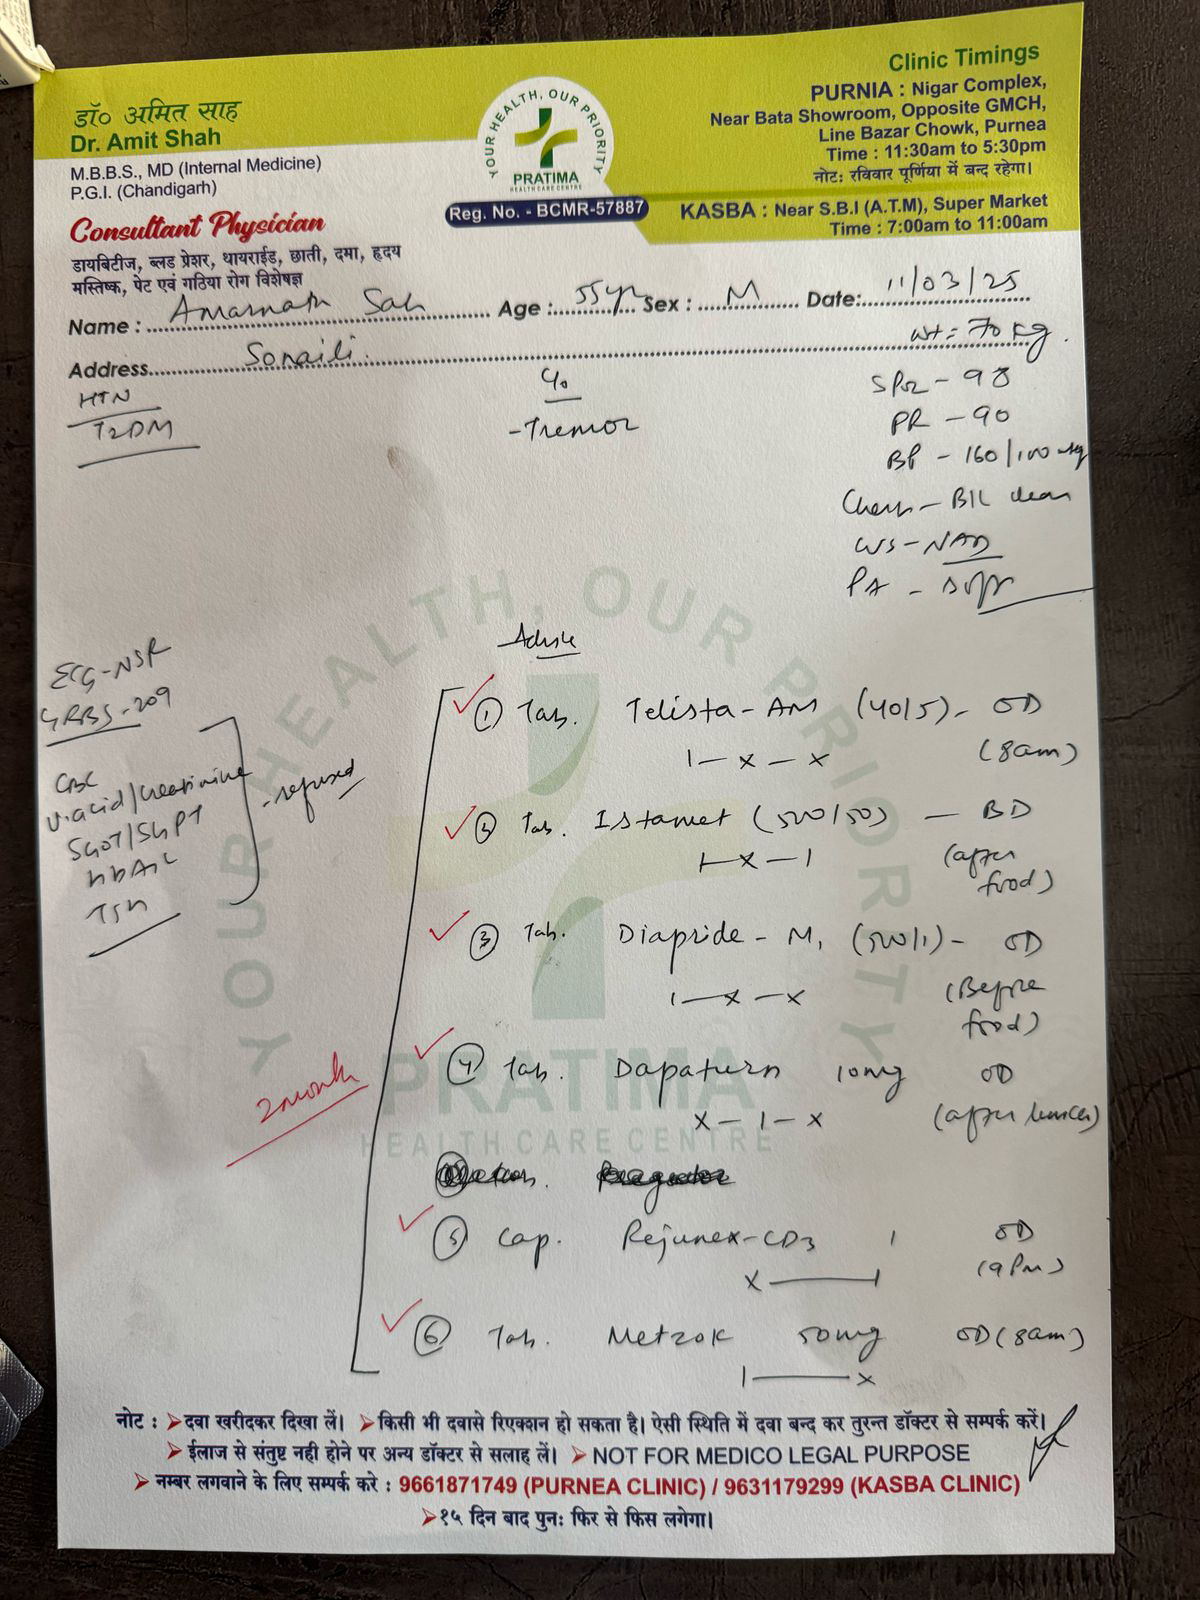 डॉ० अमित साह
Dr. Amit Shah
M.B.B.S., MD (Internal Medicine)
P.G.I. (Chandigarh)
Consultant Physician
डायबिटीज, ब्लड प्रेशर, थायराईड, छाती, दमा, हृदय
मस्तिष्क, पेट एवं गठिया रोग विशेषज्ञ
YOUR HEALTH, OUR PRIORITY
PRATIMA
HEALTH CARE CENTRE
Reg. No. - BCMR-57887
Clinic Timings
PURNIA : Nigar Complex,
Near Bata Showroom, Opposite GMCH,
Line Bazar Chowk, Purnea
Time : 11:30am to 5:30pm
नोट: रविवार पूर्णिया में बन्द रहेगा।
KASBA : Near S.B.I (A.T.M), Super Market
Time : 7:00am to 11:00am
Name : Amarnath Sah Age : 55yr Sex : M Date: 11/03/25
Address Sonaili wt = 70 kg.
HTN
T2DM
c/o
- Tremor
SPO2 - 98
PR - 90
BP - 160/100
Chest - B/L clear
CVS - NAD
PA - soft
ECG - NSR
GRBS - 209
CBC
U.acid/Creatinine
SGOT/SGPT
HbA1c
TSH
- refused
2 month
Advise
① Tab. Telista-AM (40/5) - OD
1 - x - x (8am)
② Tab. Istamet (500/50) - BD
1 - x - 1 (after food)
③ Tab. Diapride - M1 (500/1) - OD
1 - x - x (Before food)
④ Tab. Dapaturn 10mg OD
x - 1 - x (after lunch)
⑤ Cap. Rejunex-CD3 1 OD
x — 1 (9pm)
⑥ Tab. Metzok 50mg OD (8am)
1 — x
YOUR HEALTH, OUR PRIORITY
PRATIMA
HEALTH CARE CENTRE
नोट : ➤दवा खरीदकर दिखा लें। ➤किसी भी दवासे रिएक्शन हो सकता है। ऐसी स्थिति में दवा बन्द कर तुरन्त डॉक्टर से सम्पर्क करें।
➤ईलाज से संतुष्ट नही होने पर अन्य डॉक्टर से सलाह लें। ➤NOT FOR MEDICO LEGAL PURPOSE
➤ नम्बर लगवाने के लिए सम्पर्क करे : 9661871749 (PURNEA CLINIC) / 9631179299 (KASBA CLINIC)
➤१५ दिन बाद पुनः फिर से फिस लगेगा।